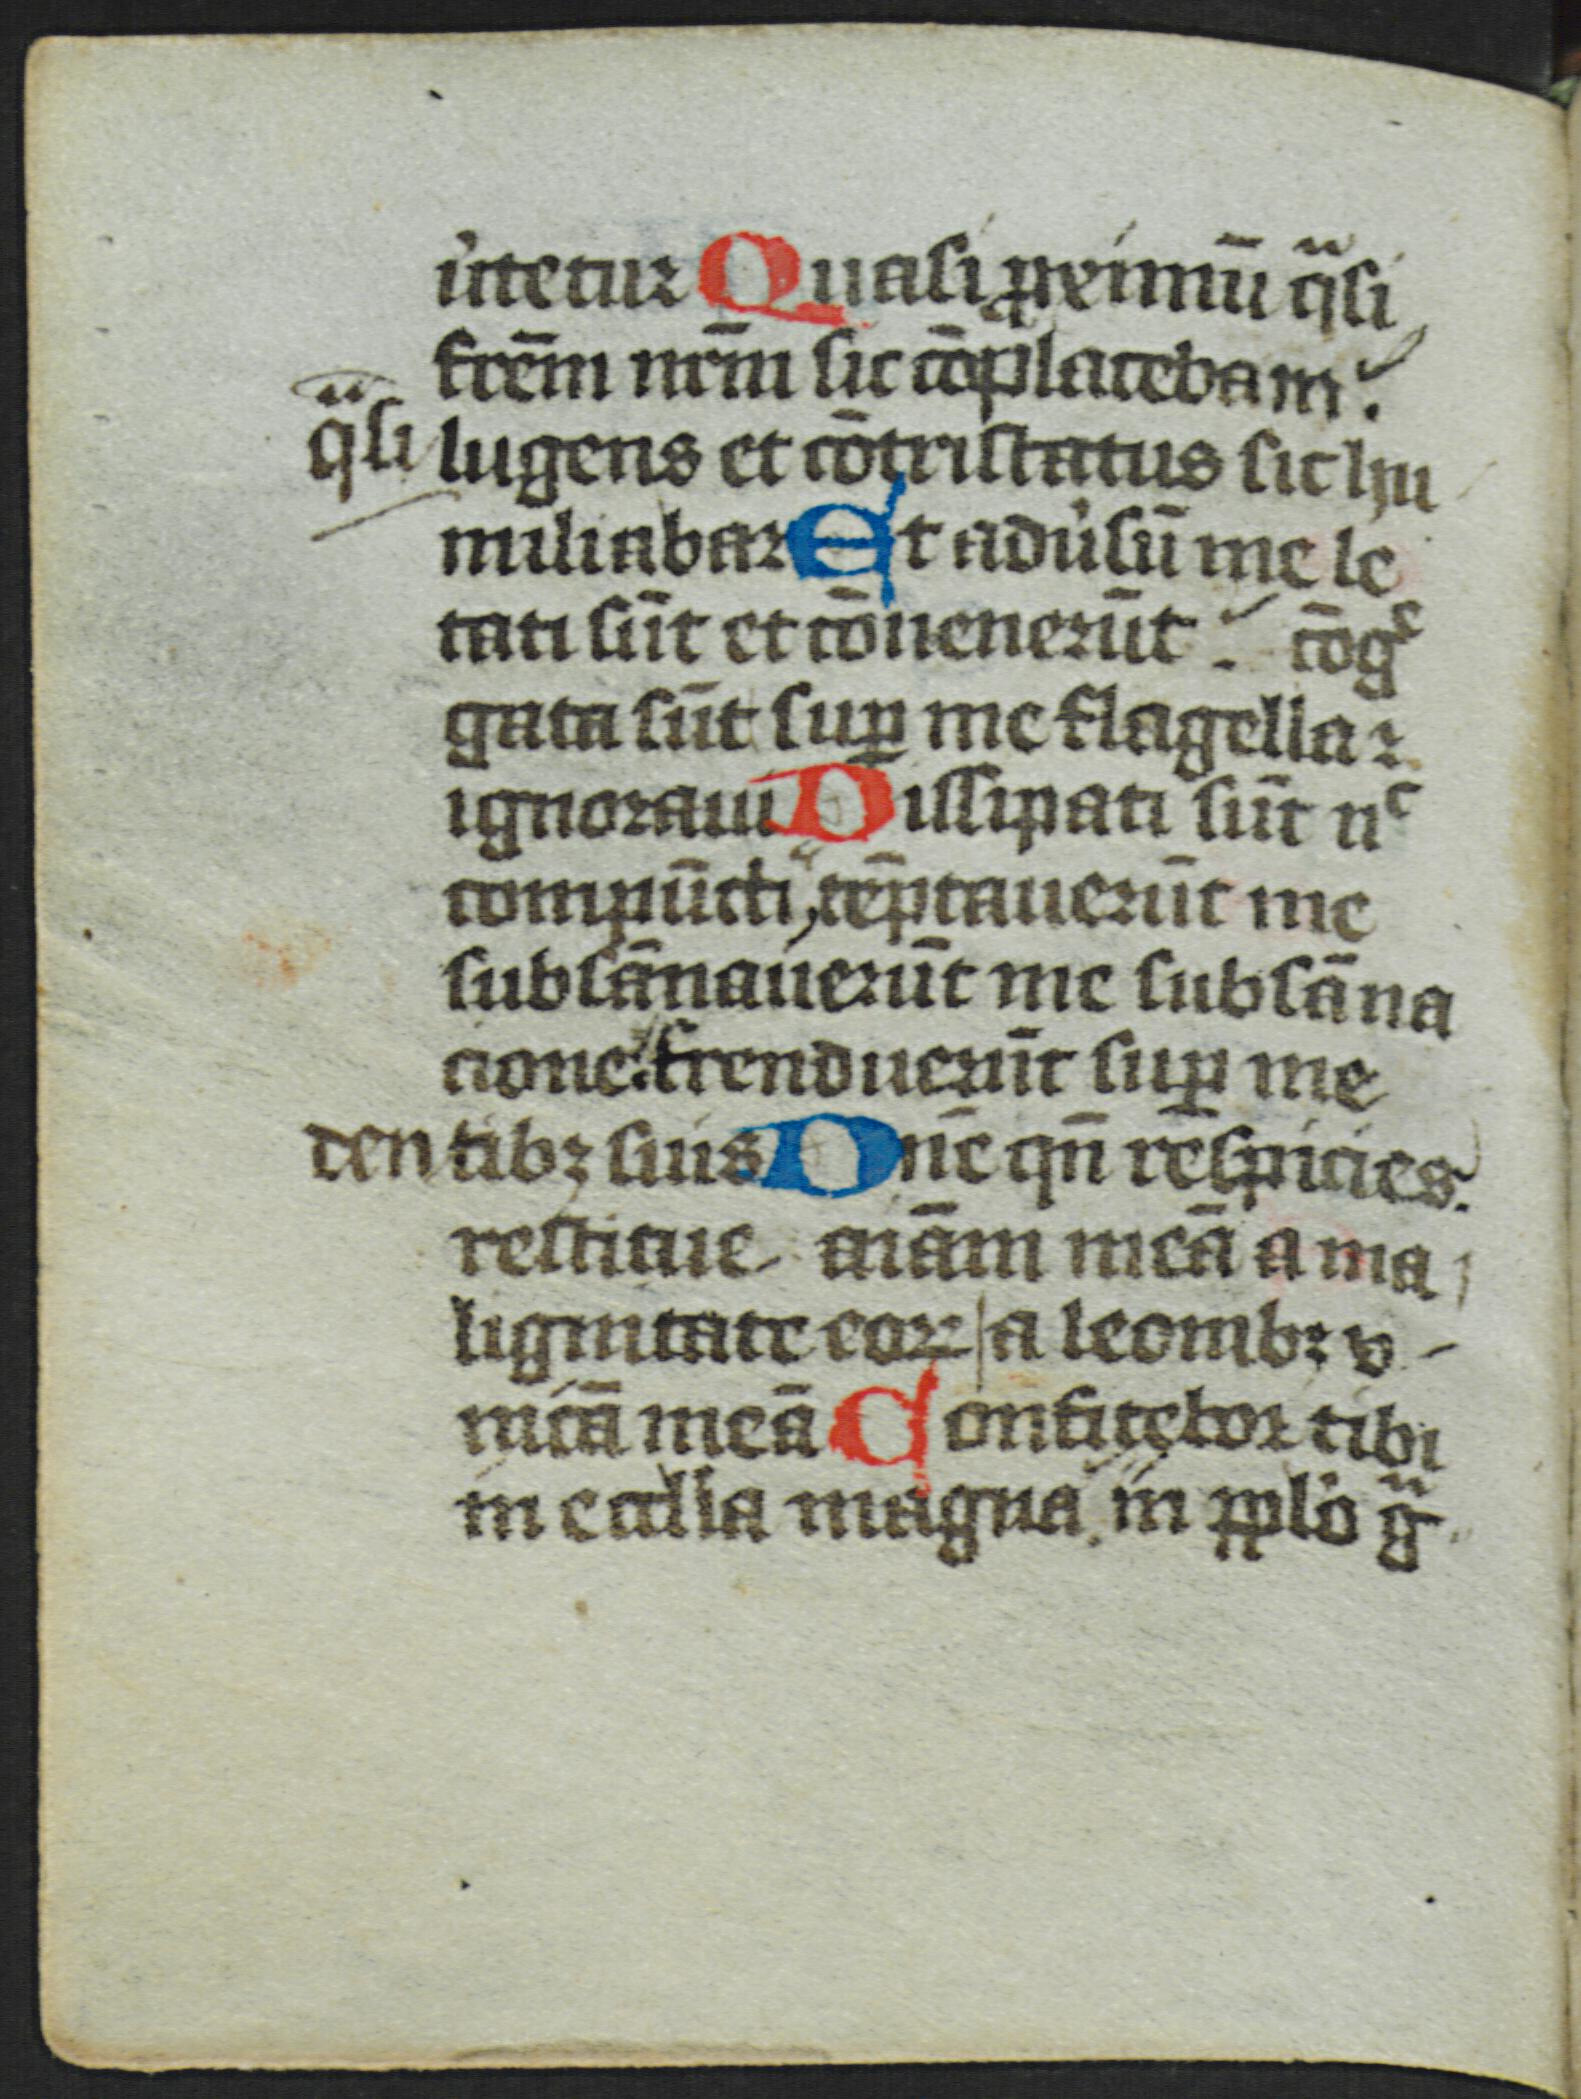 u͛tetur Quasi ꝓximū qͣsi
frēm nr̄m sic cōplacebam.
qͣsi lugens et cōtristatus sic hu
miliabar Et adu͛sū me le
tati sūt et cōuenerūt. cōgͤ
gata sūt suꝑ me flagella ⁊
ignoraui Dissipati sūt nͨ
compūcti, tēptauerūt me
subsānauerūt me subsāna
cione. frenduerūt suꝑ me
dentibꝫ suis Dn̄e qn̄ rēspicies.
restitue aīam meā a ma
lignitate eoꝝ a leonibꝫ v
nicā meā Confitebor tibi
in eccl̄ia magna, in ppl̄o gͣ